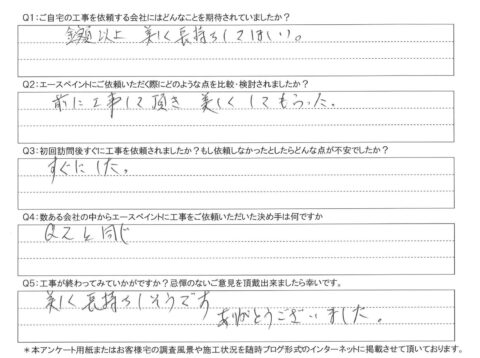 Q1:ご自宅の工事を依頼する会社にはどんなことを期待されていましたか?
金額以上 美しく長持ちしてほしい。
Q2:エースペイントにご依頼いただく際にどのような点を比較・検討されましたか?
前に工事して頂き 美しくしてもらった。
Q3:初回訪問後すぐに工事を依頼されましたか?もし依頼しなかったとしたらどんな点が不安でしたか?
すぐにした。
Q4:数ある会社の中からエースペイントに工事をご依頼いただいた決め手は何ですか
Q2と同じ
Q5:工事が終わってみていかがですか?忌憚のないご意見を頂戴出来ましたら幸いです。
美しく長持ちしそうです
ありがとうございました。
*本アンケート用紙またはお客様宅の調査風景や施工状況を随時ブログ形式のインターネットに掲載させて頂いております。